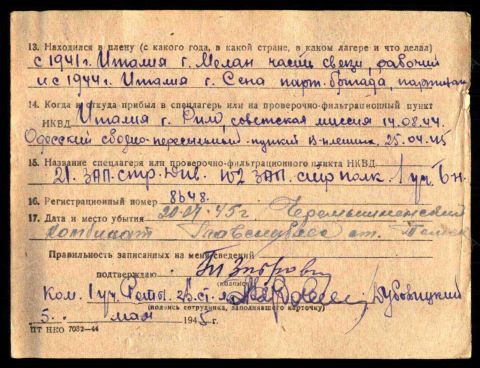 13. Находился в плену (с какого года, в какой стране, в каком лагере и что делал)
с 1941г Италия г. Мелан части связи, рабочий
и с 1944г. Италия г. Сена парт. бригада, партизан
14. Когда и откуда прибыл в спецлагерь или на проверочно-фильтрационный пункт
НКВД Италия г. Рило, советская миссия 14.08.44
Одесский сборно-пересыльный пункт 25.04.45
15. Название спецлагеря или проверочно-фильтрационного пункта НКВД
21. ЗАП. стр. 102 ЗАП. стр полк. 1 уч. Бн.
16. Регистрационный номер 8648.
17. Дата и место убытия 45г Черемшинский
комбинат ст.
Правильность записанных на меня сведений
подтверждаю
(подпись)
Ком. 1 уч. Роты Дубовицкий
(подпись сотрудника, заполнявшего карточку)
5. мая 1945 г.
ПТ НКО 7032—44